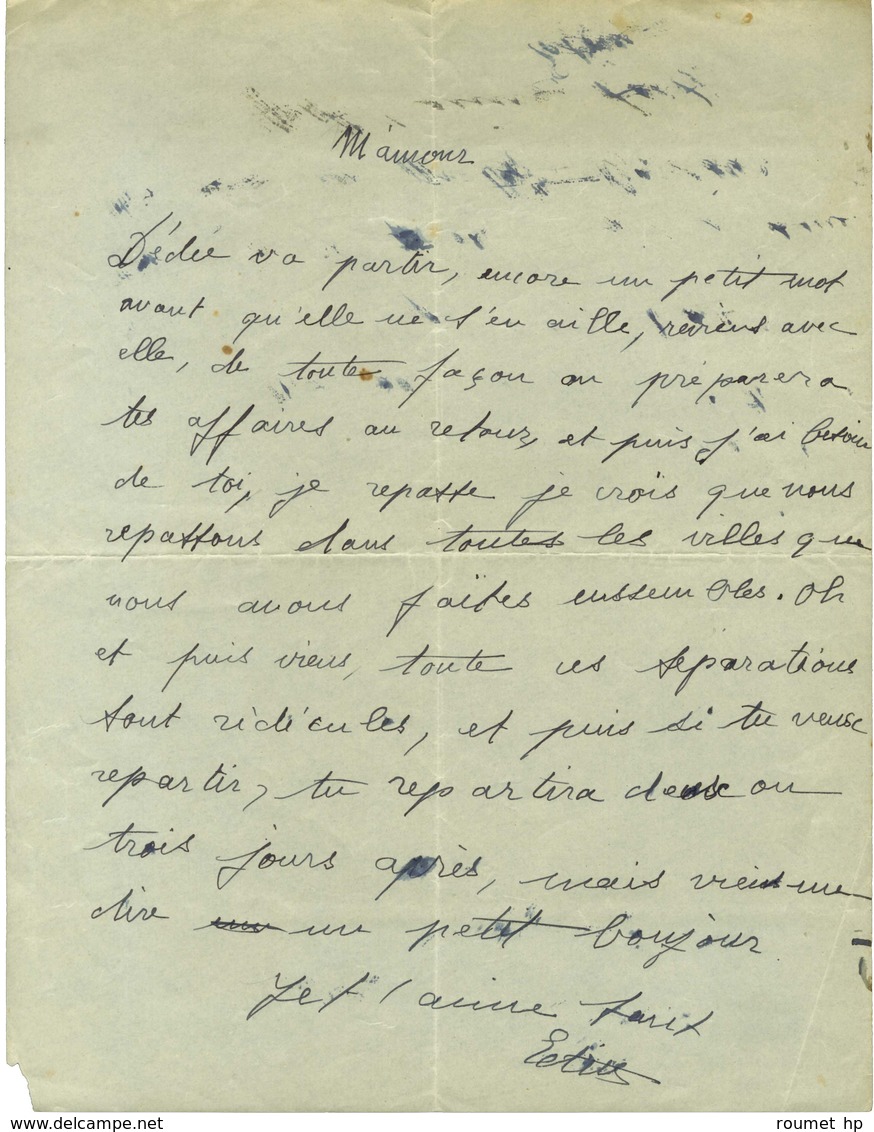 M'amour
Dédée va partir, encore un petit mot
avant qu'elle ne s'en aille, reviens avec
elle, de toute façon on préparera
tes affaires au retour, et puis j'ai besoin
de toi, je repasse je crois que nous
repassons dans toutes les villes que
nous avons faites enssembles. Oh
et puis viens, toute ces séparations
sont ridicules, et puis si tu veux
repartir, tu repartira deux ou
trois jours après, mais viens me
dire un petit bonjour
Je t'aime tant
Edith
www.delcampe.net
roumet hp